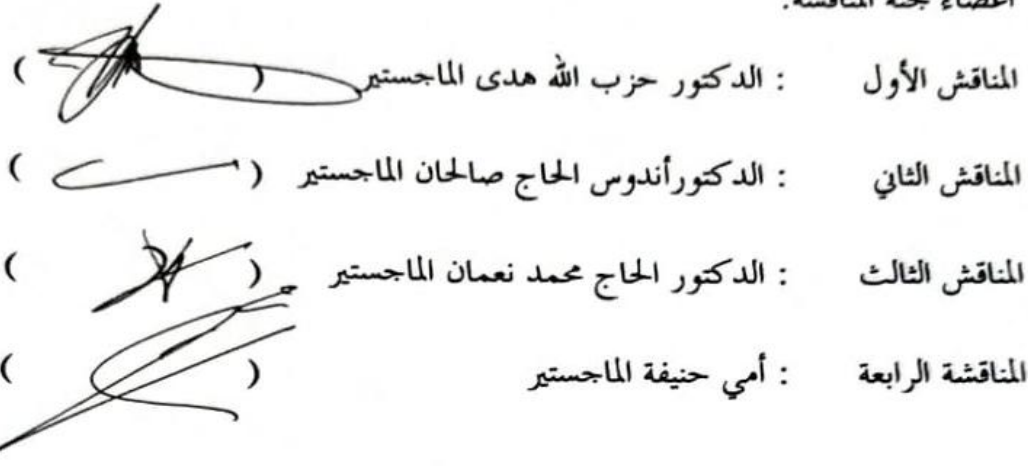 أعضاء لجنة المناقشة:
المناقش الأول : الدكتور حزب الله هدى الماجستير ( )
المناقش الثاني : الدكتورأندوس الحاج صالحان الماجستير ( )
المناقش الثالث : الدكتور الحاج محمد نعمان الماجستير ( )
المناقشة الرابعة : أمي حنيفة الماجستير ( )